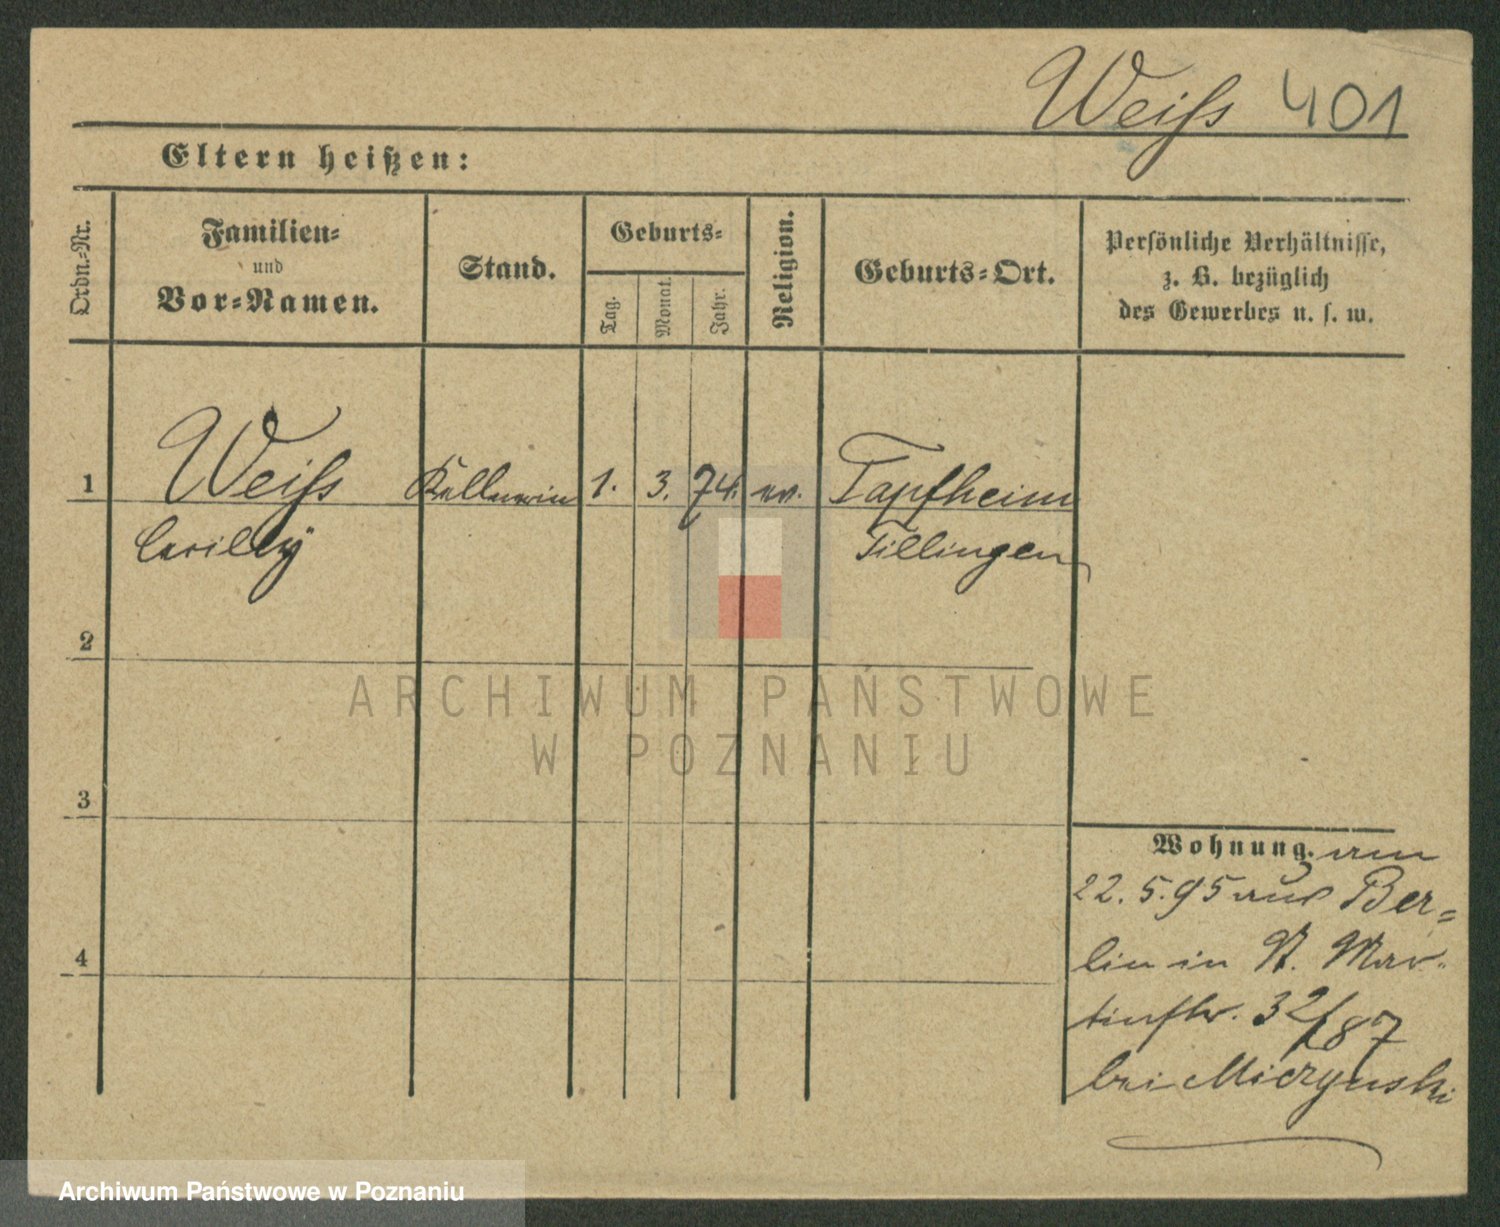 Weiſs 401
Eltern heißen:
Ordn.-Nr.
Familien-
und
Vor-Namen.
Stand.
Geburts-
Tag.
Monat.
Jahr.
Religion.
Geburts-Ort.
Persönliche Verhältnisse,
z. B. bezüglich
des Gewerbes u. s. w.
1 Weiſs Kellnerin 1. 3. 74. ev. Tapfheim
Cecilly Dillingen
2
3
4
Wohnung. am
22. 5. 95 aus Ber-
lin in St. Mar-
tinstr. 32/87
bei Miczynski
ARCHIWUM PAŃSTWOWE
W POZNANIU
Archiwum Państwowe w Poznaniu